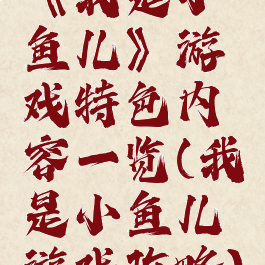 《我是小
鱼儿》游
戏特色内
容一览(我
是小鱼儿
游戏攻略)